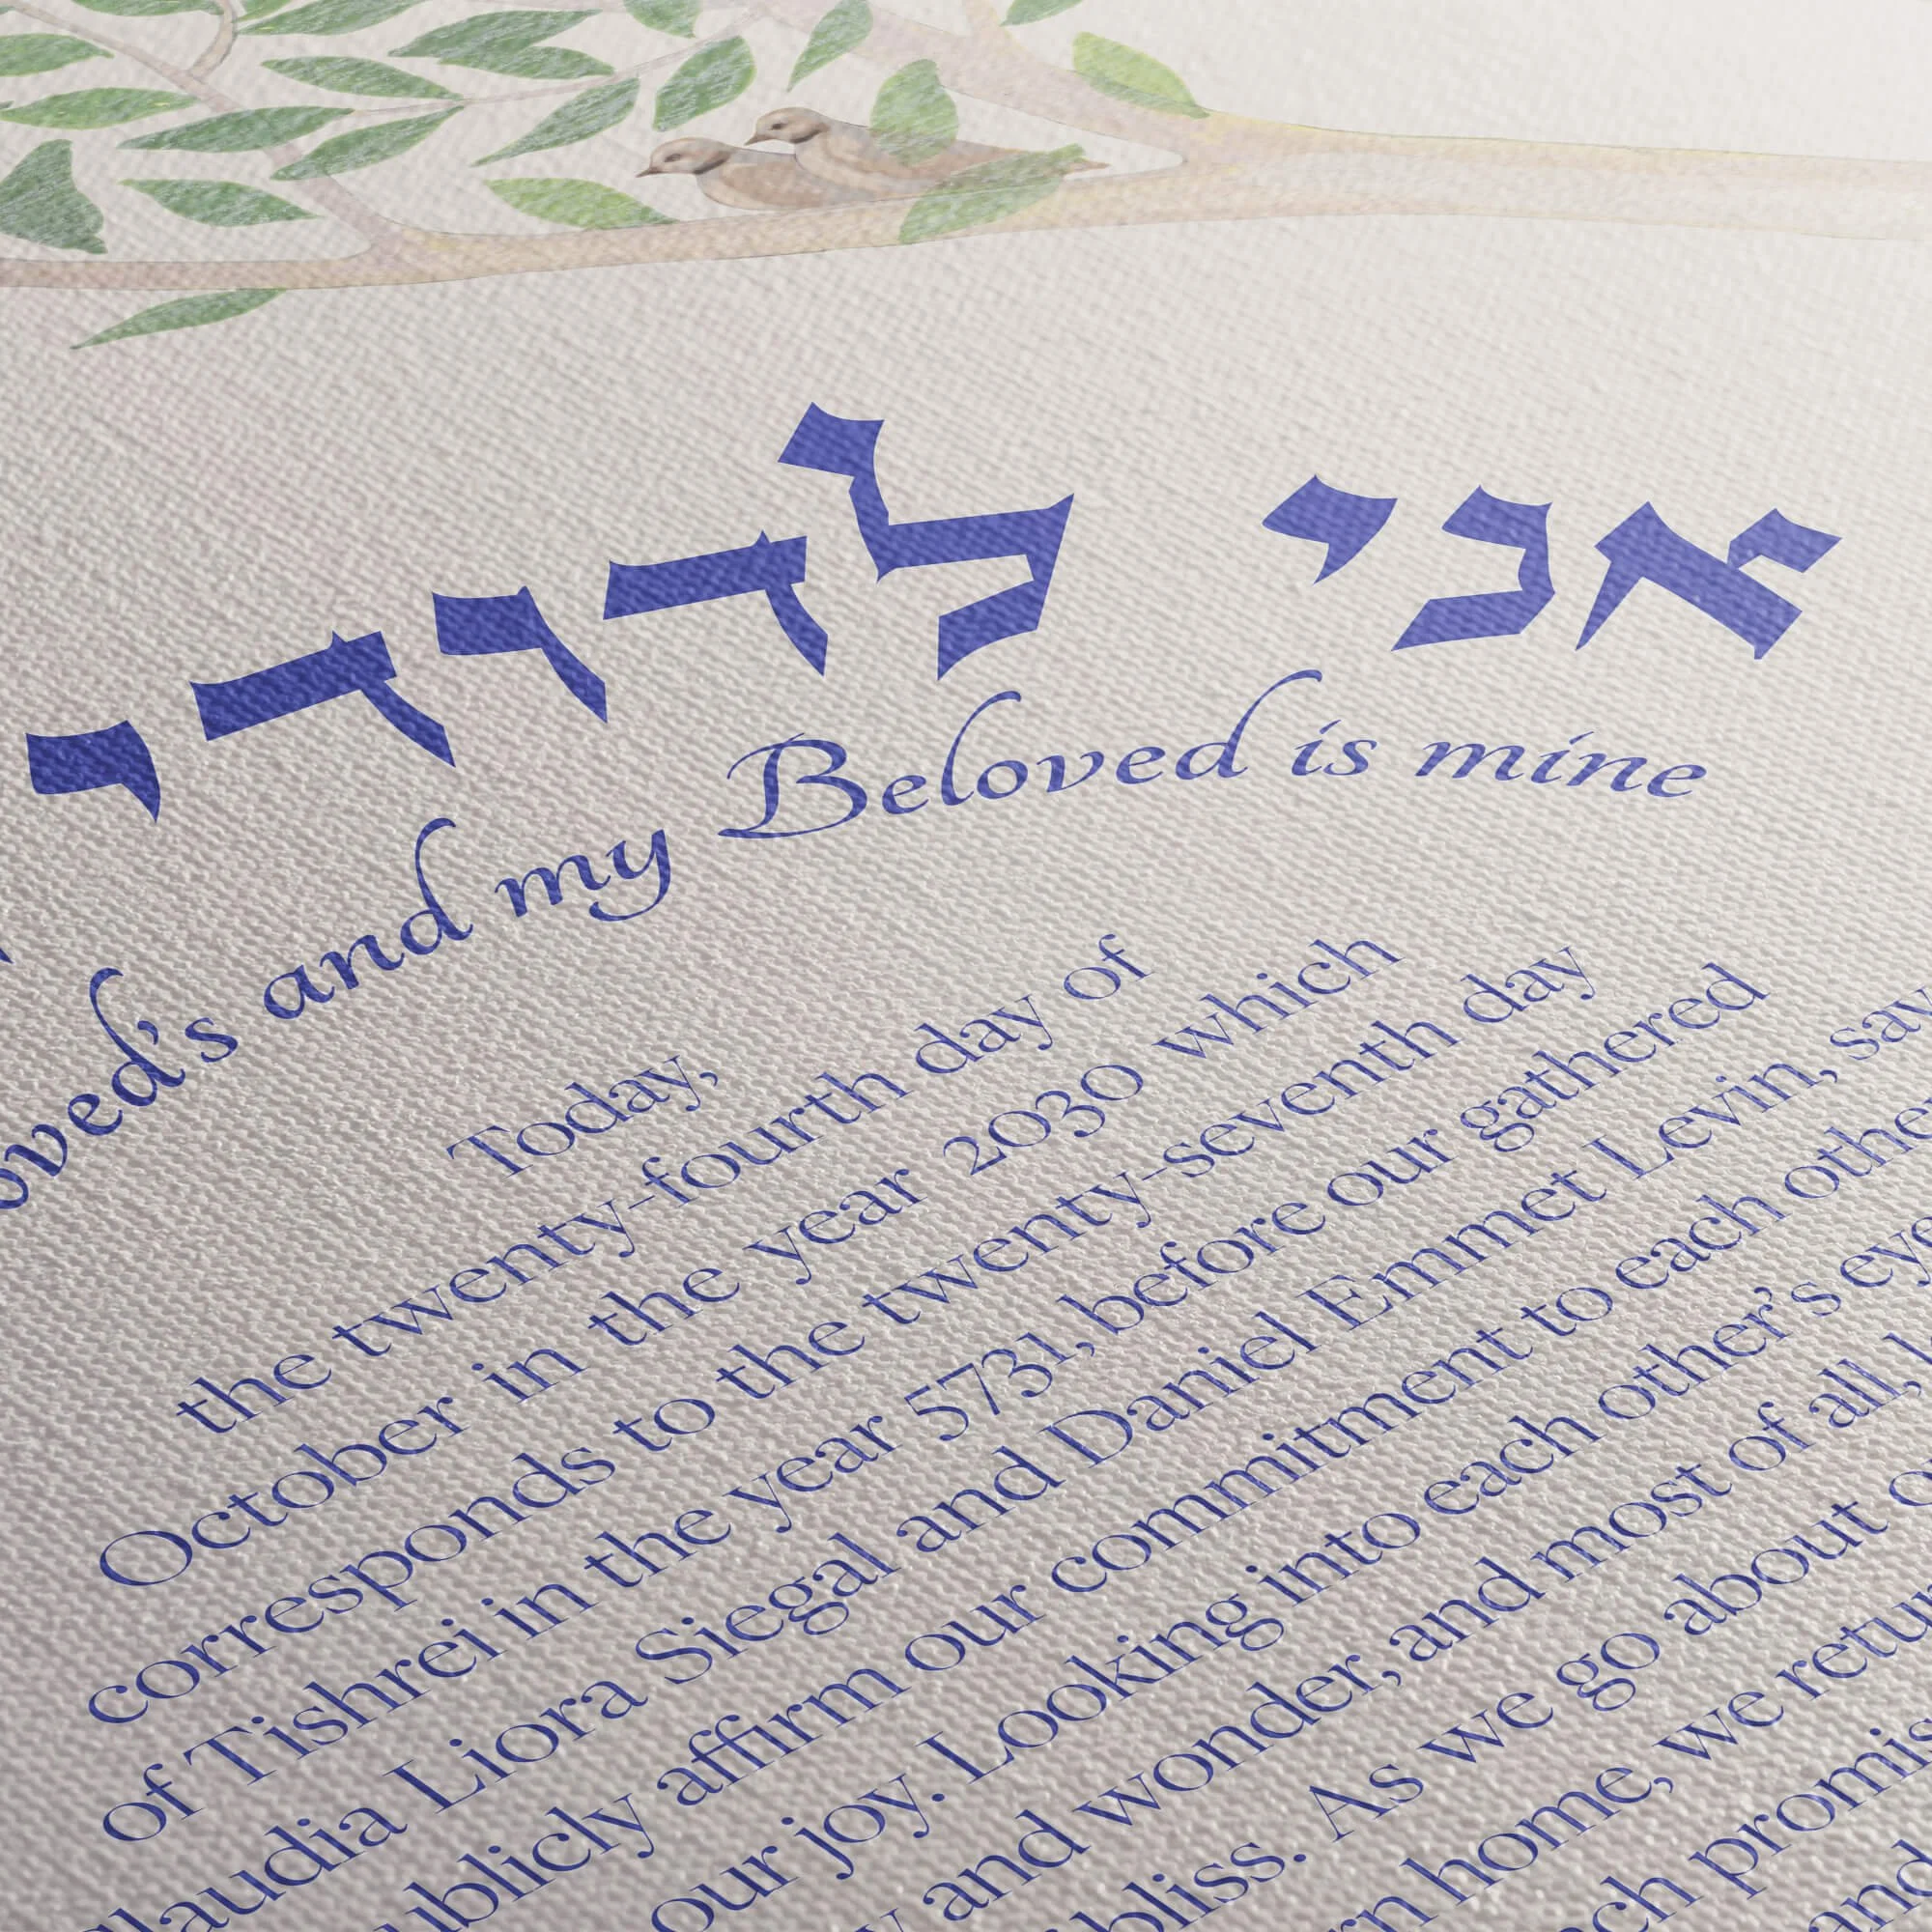 אני לדודי
and my Beloved is mine
Today,
the twenty-fourth day of
October in the year 2030 which
corresponds to the twenty-seventh day
of Tishrei in the year 5731, before our gathered
Liora Siegal and Daniel Emmet Levin,
affirm our commitment to each
our joy. Looking into each other's
and wonder, and most of all,
bliss. As we go about
home, we